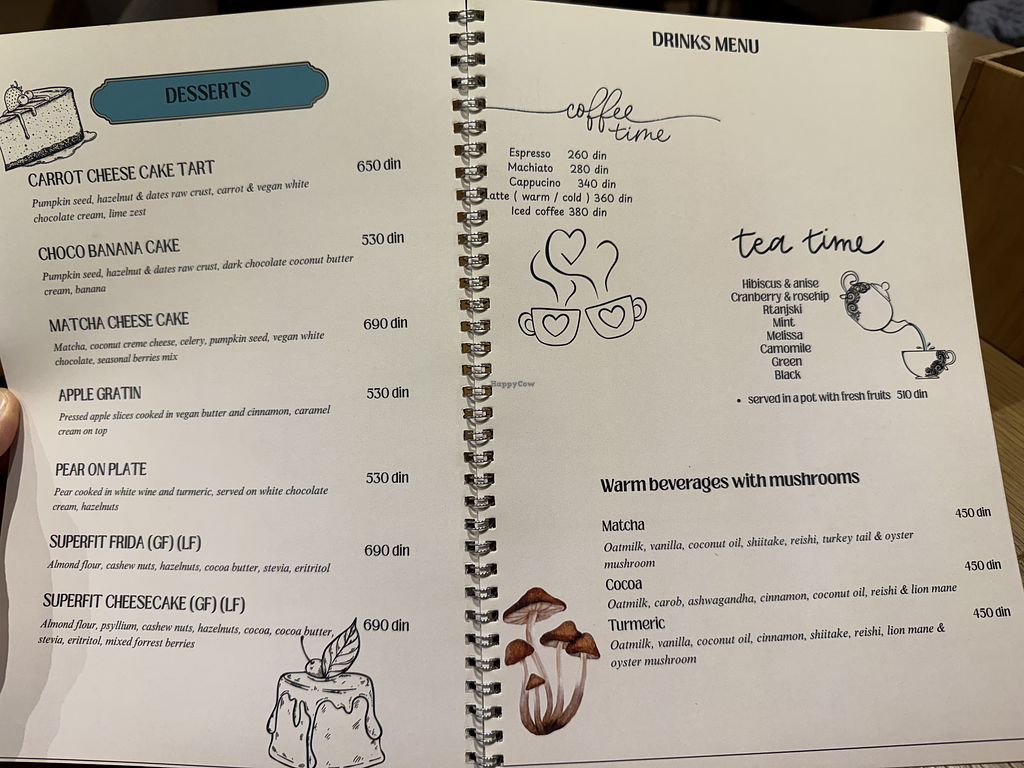 DESSERTS
CARROT CHEESE CAKE TART 650 din
Pumpkin seed, hazelnut & dates raw crust, carrot & vegan white
chocolate cream, lime zest
CHOCO BANANA CAKE 530 din
Pumpkin seed, hazelnut & dates raw crust, dark chocolate coconut butter
cream, banana
MATCHA CHEESE CAKE 690 din
Matcha, coconut creme cheese, celery, pumpkin seed, vegan white
chocolate, seasonal berries mix
APPLE GRATIN 530 din
Pressed apple slices cooked in vegan butter and cinnamon, caramel
cream on top
PEAR ON PLATE 530 din
Pear cooked in white wine and turmeric, served on white chocolate
cream, hazelnuts
SUPERFIT FRIDA (GF) (LF) 690 din
Almond flour, cashew nuts, hazelnuts, cocoa butter, stevia, eritritol
SUPERFIT CHEESECAKE (GF) (LF) 690 din
Almond flour, psyllium, cashew nuts, hazelnuts, cocoa, cocoa butter,
stevia, eritritol, mixed forrest berries
DRINKS MENU
coffee
time
Espresso 260 din
Machiato 280 din
Cappucino 340 din
Latte ( warm / cold ) 360 din
Iced coffee 380 din
tea time
Hibiscus & anise
Cranberry & rosehip
Rtanjski
Mint
Melissa
Camomile
Green
Black
• served in a pot with fresh fruits 510 din
HappyCow
Warm beverages with mushrooms
Matcha 450 din
Oatmilk, vanilla, coconut oil, shiitake, reishi, turkey tail & oyster
mushroom
Cocoa 450 din
Oatmilk, carob, ashwagandha, cinnamon, coconut oil, reishi & lion mane
Turmeric 450 din
Oatmilk, vanilla, coconut oil, cinnamon, shiitake, reishi, lion mane &
oyster mushroom